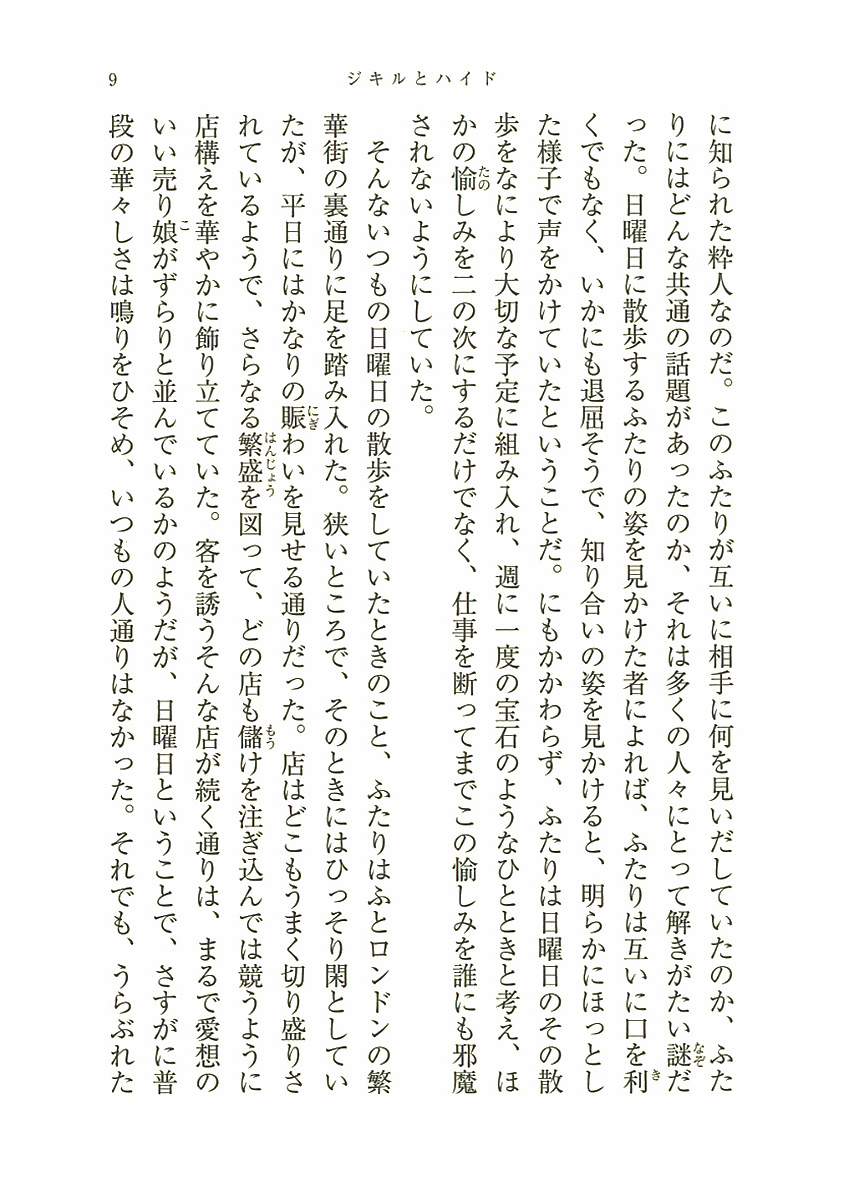 ジキルとハイド
9
に知られた粋人なのだ。このふたりが互いに相手に何を見いだしていたのか、ふた
りにはどんな共通の話題があったのか、それは多くの人々にとって解きがたい謎だ
った。日曜日に散歩するふたりの姿を見かけた者によれば、ふたりは互いに口を利
くでもなく、いかにも退屈そうで、知り合いの姿を見かけると、明らかにほっとし
た様子で声をかけていたということだ。にもかかわらず、ふたりは日曜日のその散
歩をなにより大切な予定に組み入れ、週に一度の宝石のようなひとときと考え、ほ
かの愉しみを二の次にするだけでなく、仕事を断ってまでこの愉しみを誰にも邪魔
されないようにしていた。
そんないつもの日曜日の散歩をしていたときのこと、ふたりはふとロンドンの繁
華街の裏通りに足を踏み入れた。狭いところで、そのときにはひっそり閑としてい
たが、平日にはかなりの賑わいを見せる通りだった。店はどこもうまく切り盛りさ
れているようで、さらなる繁盛を図って、どの店も儲けを注ぎ込んでは競うように
店構えを華やかに飾り立てていた。客を誘うそんな店が続く通りは、まるで愛想の
いい売り娘がずらりと並んでいるかのようだが、日曜日ということで、さすがに普
段の華々しさは鳴りをひそめ、いつもの人通りはなかった。それでも、うらぶれた